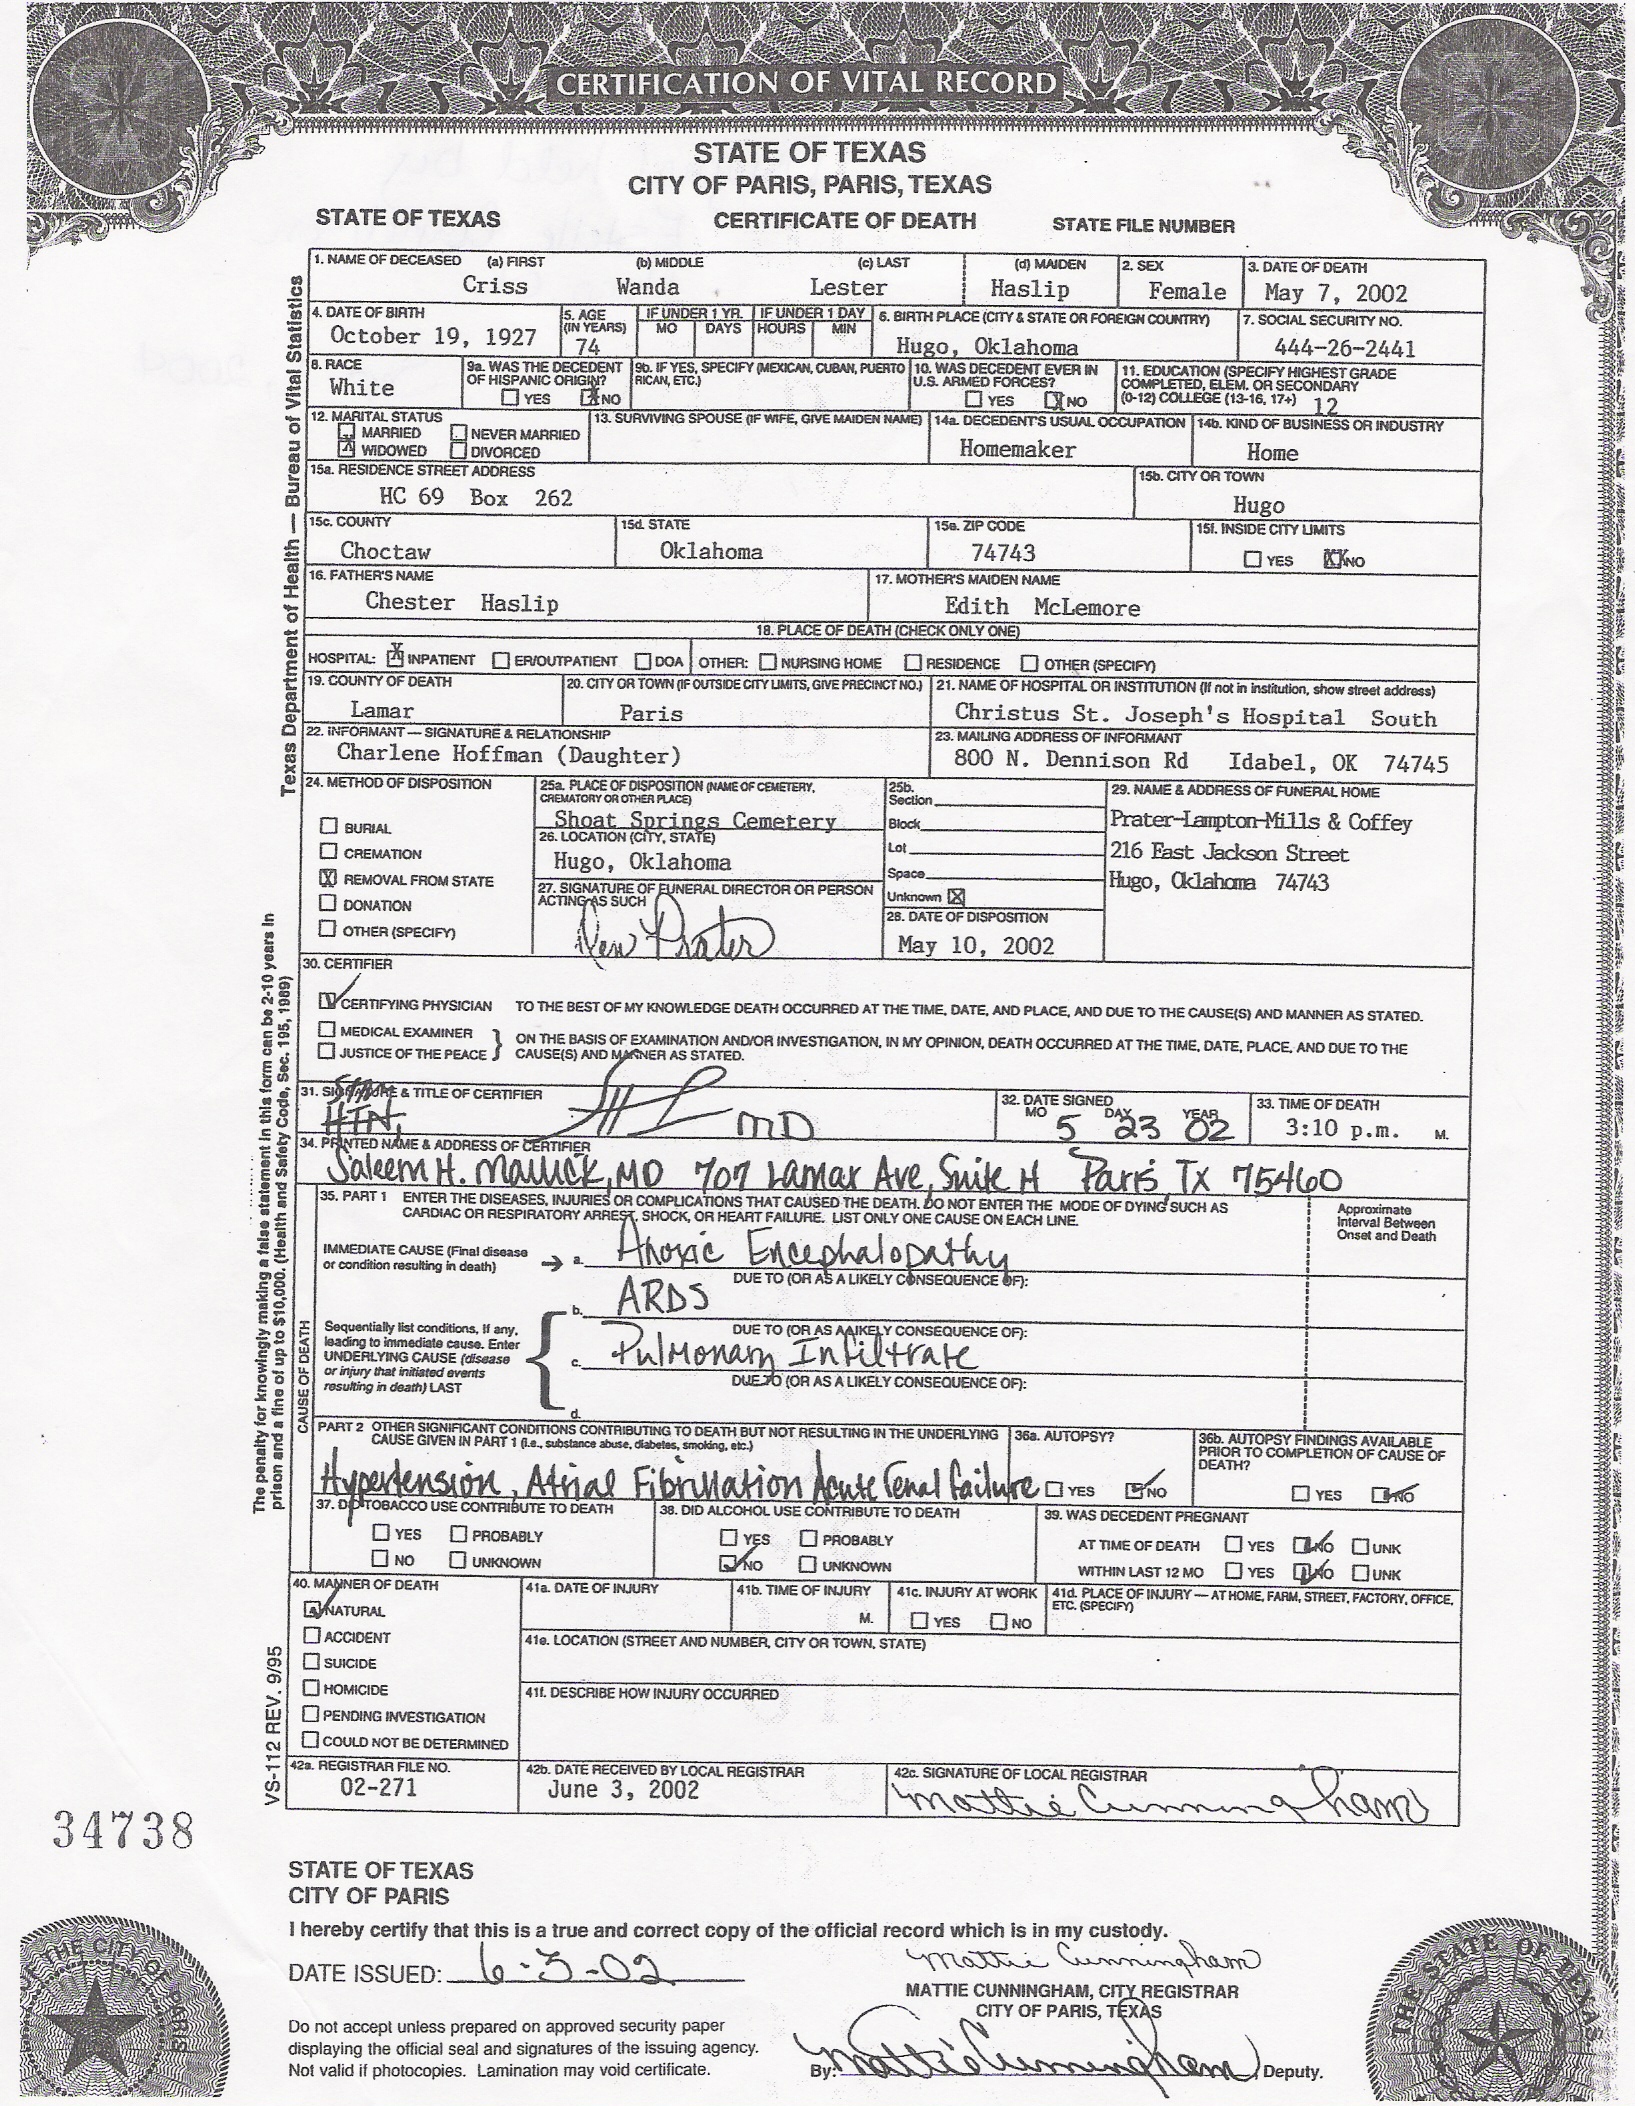 CERTIFICATION OF VITAL RECORD
STATE OF TEXAS
CITY OF PARIS, PARIS, TEXAS
STATE OF TEXAS CERTIFICATE OF DEATH STATE FILE NUMBER
1. NAME OF DECEASED (a) FIRST (b) MIDDLE (c) LAST (d) MAIDEN 2. SEX 3. DATE OF DEATH
Criss Wanda Lester Haslip Female May 7, 2002
4. DATE OF BIRTH 5. AGE (IN YEARS) IF UNDER 1 YR. IF UNDER 1 DAY 6. BIRTH PLACE (CITY & STATE OR FOREIGN COUNTRY) 7. SOCIAL SECURITY NO.
MO DAYS HOURS MIN
October 19, 1927 74 Hugo, Oklahoma 444-26-2441
8. RACE 9a. WAS THE DECEDENT OF HISPANIC ORIGIN? 9b. IF YES, SPECIFY (MEXICAN, CUBAN, PUERTO RICAN, ETC.) 10. WAS DECEDENT EVER IN U.S. ARMED FORCES? 11. EDUCATION (SPECIFY HIGHEST GRADE COMPLETED, ELEM. OR SECONDARY (0-12) COLLEGE (13-16, 17+) 12
White YES X NO YES X NO
12. MARITAL STATUS 13. SURVIVING SPOUSE (IF WIFE, GIVE MAIDEN NAME) 14a. DECEDENT'S USUAL OCCUPATION 14b. KIND OF BUSINESS OR INDUSTRY
MARRIED NEVER MARRIED
X WIDOWED DIVORCED Homemaker Home
15a. RESIDENCE STREET ADDRESS 15b. CITY OR TOWN
HC 69 Box 262 Hugo
15c. COUNTY 15d. STATE 15e. ZIP CODE 15f. INSIDE CITY LIMITS
Choctaw Oklahoma 74743 YES XX NO
16. FATHER'S NAME 17. MOTHER'S MAIDEN NAME
Chester Haslip Edith McLemore
18. PLACE OF DEATH (CHECK ONLY ONE)
HOSPITAL: X INPATIENT ER/OUTPATIENT DOA OTHER: NURSING HOME RESIDENCE OTHER (SPECIFY)
19. COUNTY OF DEATH 20. CITY OR TOWN (IF OUTSIDE CITY LIMITS, GIVE PRECINCT NO.) 21. NAME OF HOSPITAL OR INSTITUTION (If not in institution, show street address)
Lamar Paris Christus St. Joseph's Hospital South
22. INFORMANT — SIGNATURE & RELATIONSHIP 23. MAILING ADDRESS OF INFORMANT
Charlene Hoffman (Daughter) 800 N. Dennison Rd Idabel, OK 74745
24. METHOD OF DISPOSITION
BURIAL
CREMATION
X REMOVAL FROM STATE
DONATION
OTHER (SPECIFY)
25a. PLACE OF DISPOSITION (NAME OF CEMETERY, CREMATORY OR OTHER PLACE)
Shoat Springs Cemetery
26. LOCATION (CITY, STATE)
Hugo, Oklahoma
27. SIGNATURE OF FUNERAL DIRECTOR OR PERSON ACTING AS SUCH
Prater
25b.
Section
Block
Lot
Space
Unknown X
28. DATE OF DISPOSITION
May 10, 2002
29. NAME & ADDRESS OF FUNERAL HOME
Prater-Lampton-Mills & Coffey
216 East Jackson Street
Hugo, Oklahoma 74743
30. CERTIFIER
CERTIFYING PHYSICIAN TO THE BEST OF MY KNOWLEDGE DEATH OCCURRED AT THE TIME, DATE, AND PLACE, AND DUE TO THE CAUSE(S) AND MANNER AS STATED.
MEDICAL EXAMINER
JUSTICE OF THE PEACE
ON THE BASIS OF EXAMINATION AND/OR INVESTIGATION, IN MY OPINION, DEATH OCCURRED AT THE TIME, DATE, PLACE, AND DUE TO THE
CAUSE(S) AND MANNER AS STATED.
31. SIGNATURE & TITLE OF CERTIFIER 32. DATE SIGNED 33. TIME OF DEATH
MO DAY YEAR
HTN, MD 5 23 02 3:10 p.m. M.
34. PRINTED NAME & ADDRESS OF CERTIFIER
Saleem H. Mallick, MD 707 Lamar Ave, Suite H Paris, TX 75460
35. PART 1 ENTER THE DISEASES, INJURIES OR COMPLICATIONS THAT CAUSED THE DEATH. DO NOT ENTER THE MODE OF DYING SUCH AS
CARDIAC OR RESPIRATORY ARREST, SHOCK, OR HEART FAILURE. LIST ONLY ONE CAUSE ON EACH LINE.
Approximate
Interval Between
Onset and Death
IMMEDIATE CAUSE (Final disease
or condition resulting in death)
a. Anoxic Encephalopathy
DUE TO (OR AS A LIKELY CONSEQUENCE OF):
b. ARDS
DUE TO (OR AS A LIKELY CONSEQUENCE OF):
c. Pulmonary Infiltrate
DUE TO (OR AS A LIKELY CONSEQUENCE OF):
d.
Sequentially list conditions, if any,
leading to immediate cause. Enter
UNDERLYING CAUSE (disease
or injury that initiated events
resulting in death) LAST
CAUSE OF DEATH
PART 2 OTHER SIGNIFICANT CONDITIONS CONTRIBUTING TO DEATH BUT NOT RESULTING IN THE UNDERLYING
CAUSE GIVEN IN PART 1 (i.e., substance abuse, diabetes, smoking, etc.)
Hypertension, Atrial Fibrillation Acute renal failure
36a. AUTOPSY?
YES NO
36b. AUTOPSY FINDINGS AVAILABLE
PRIOR TO COMPLETION OF CAUSE OF
DEATH?
YES NO
37. DID TOBACCO USE CONTRIBUTE TO DEATH
YES PROBABLY
NO UNKNOWN
38. DID ALCOHOL USE CONTRIBUTE TO DEATH
YES PROBABLY
NO UNKNOWN
39. WAS DECEDENT PREGNANT
AT TIME OF DEATH YES NO UNK
WITHIN LAST 12 MO YES NO UNK
40. MANNER OF DEATH
NATURAL
ACCIDENT
SUICIDE
HOMICIDE
PENDING INVESTIGATION
COULD NOT BE DETERMINED
41a. DATE OF INJURY 41b. TIME OF INJURY M. 41c. INJURY AT WORK YES NO 41d. PLACE OF INJURY — AT HOME, FARM, STREET, FACTORY, OFFICE, ETC. (SPECIFY)
41e. LOCATION (STREET AND NUMBER, CITY OR TOWN, STATE)
41f. DESCRIBE HOW INJURY OCCURRED
42a. REGISTRAR FILE NO. 42b. DATE RECEIVED BY LOCAL REGISTRAR 42c. SIGNATURE OF LOCAL REGISTRAR
02-271 June 3, 2002 Mattie Cunningham
Texas Department of Health — Bureau of Vital Statistics
The penalty for knowingly making a false statement in this form can be 2-10 years in
prison and a fine of up to $10,000. (Health and Safety Code, Sec. 195, 1989)
VS-112 REV. 9/95
34738
STATE OF TEXAS
CITY OF PARIS
I hereby certify that this is a true and correct copy of the official record which is in my custody.
DATE ISSUED: 6-3-02
Mattie Cunningham
MATTIE CUNNINGHAM, CITY REGISTRAR
CITY OF PARIS, TEXAS
Do not accept unless prepared on approved security paper
displaying the official seal and signatures of the issuing agency.
Not valid if photocopies. Lamination may void certificate.
By: Mattie Cunningham, Deputy.
THE CITY OF PARIS
THE STATE OF TEXAS